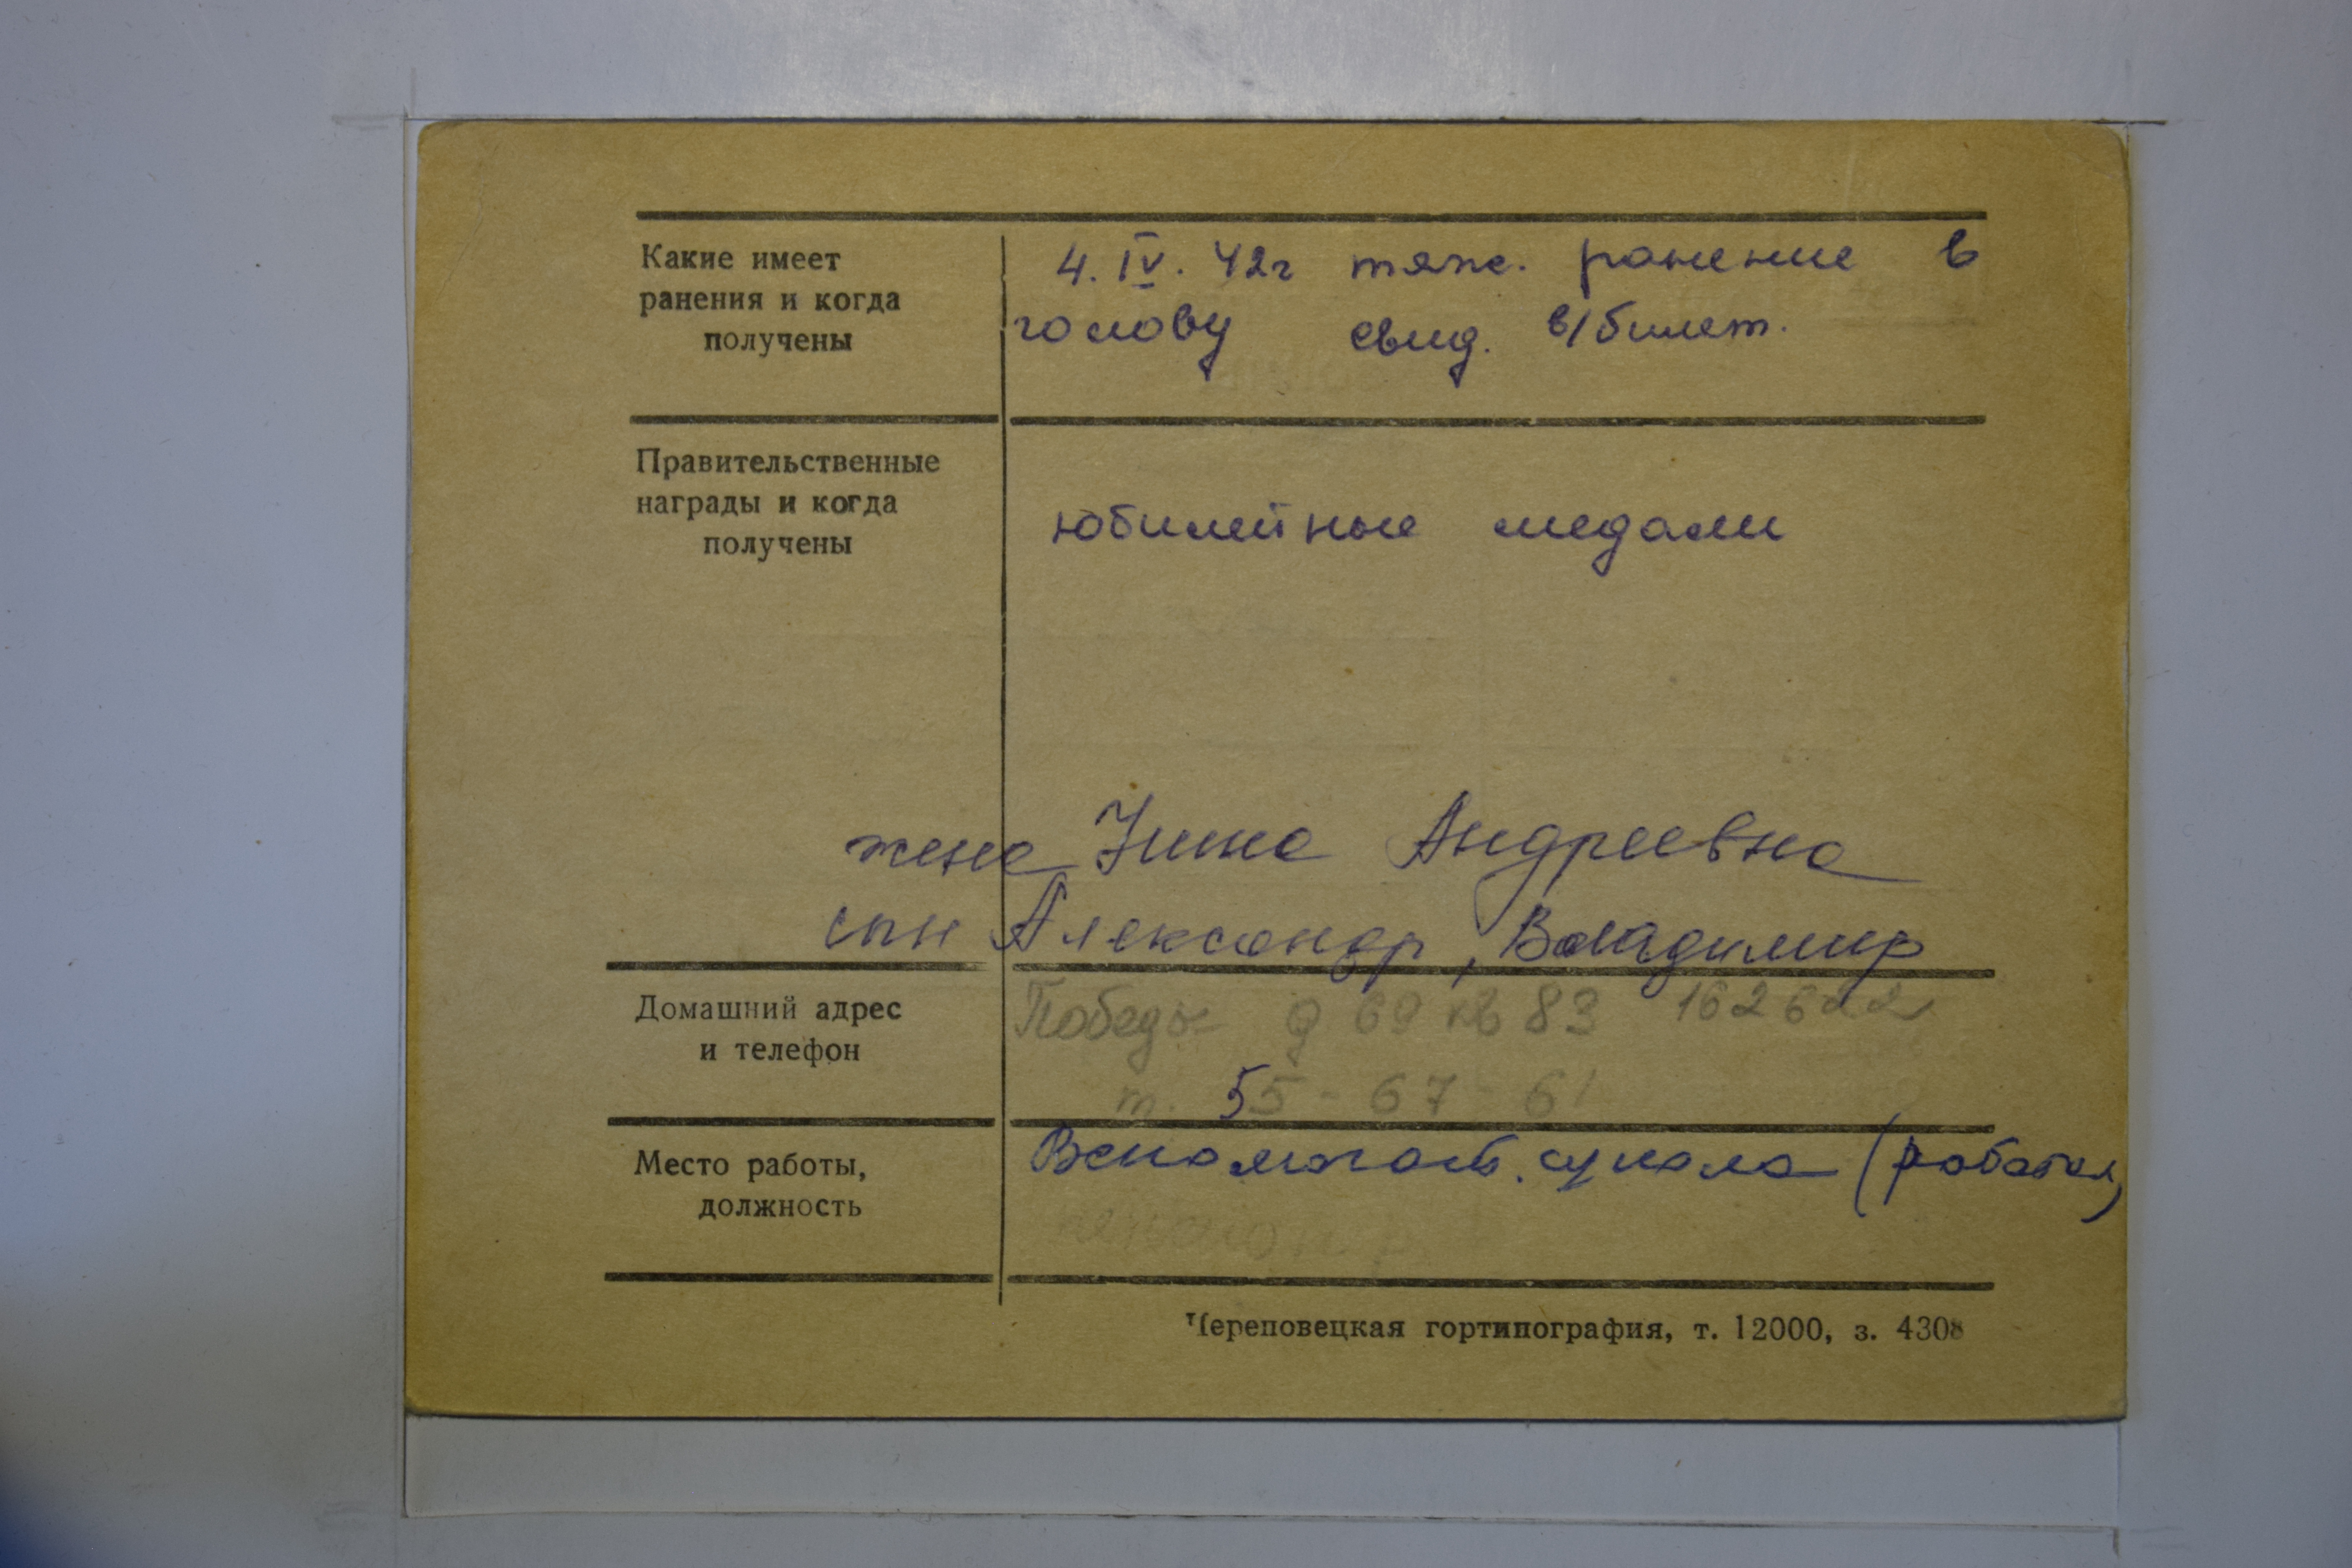 Какие имеет
ранения и когда
получены
4. IV. 42г тяж. ранение в
голову свид. в/билет.
Правительственные
награды и когда
получены
юбилейные медали
жена Нина Андреевна
сын Александр, Владимир
Домашний адрес
и телефон
Победы д 69 кв 83 162622
т. 55-67-61
Место работы,
должность
Вспомогат. школа (работал)
пенсионер
Череповецкая гортипография, т. 12000, з. 4308